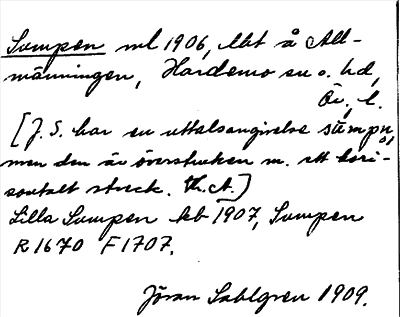 Sumpen ml 1906, lht å All-
männingen, Hardemo sn o. hd,
Ör. l.
[J. S. har en uttalsangivelse stùmpn,
men den är överstruken m. ett hori-
sontalt streck. Th. A.]
Lilla Sumpen hb 1907, Sumpen
R 1670 F 1707.
Jöran Sahlgren 1909.